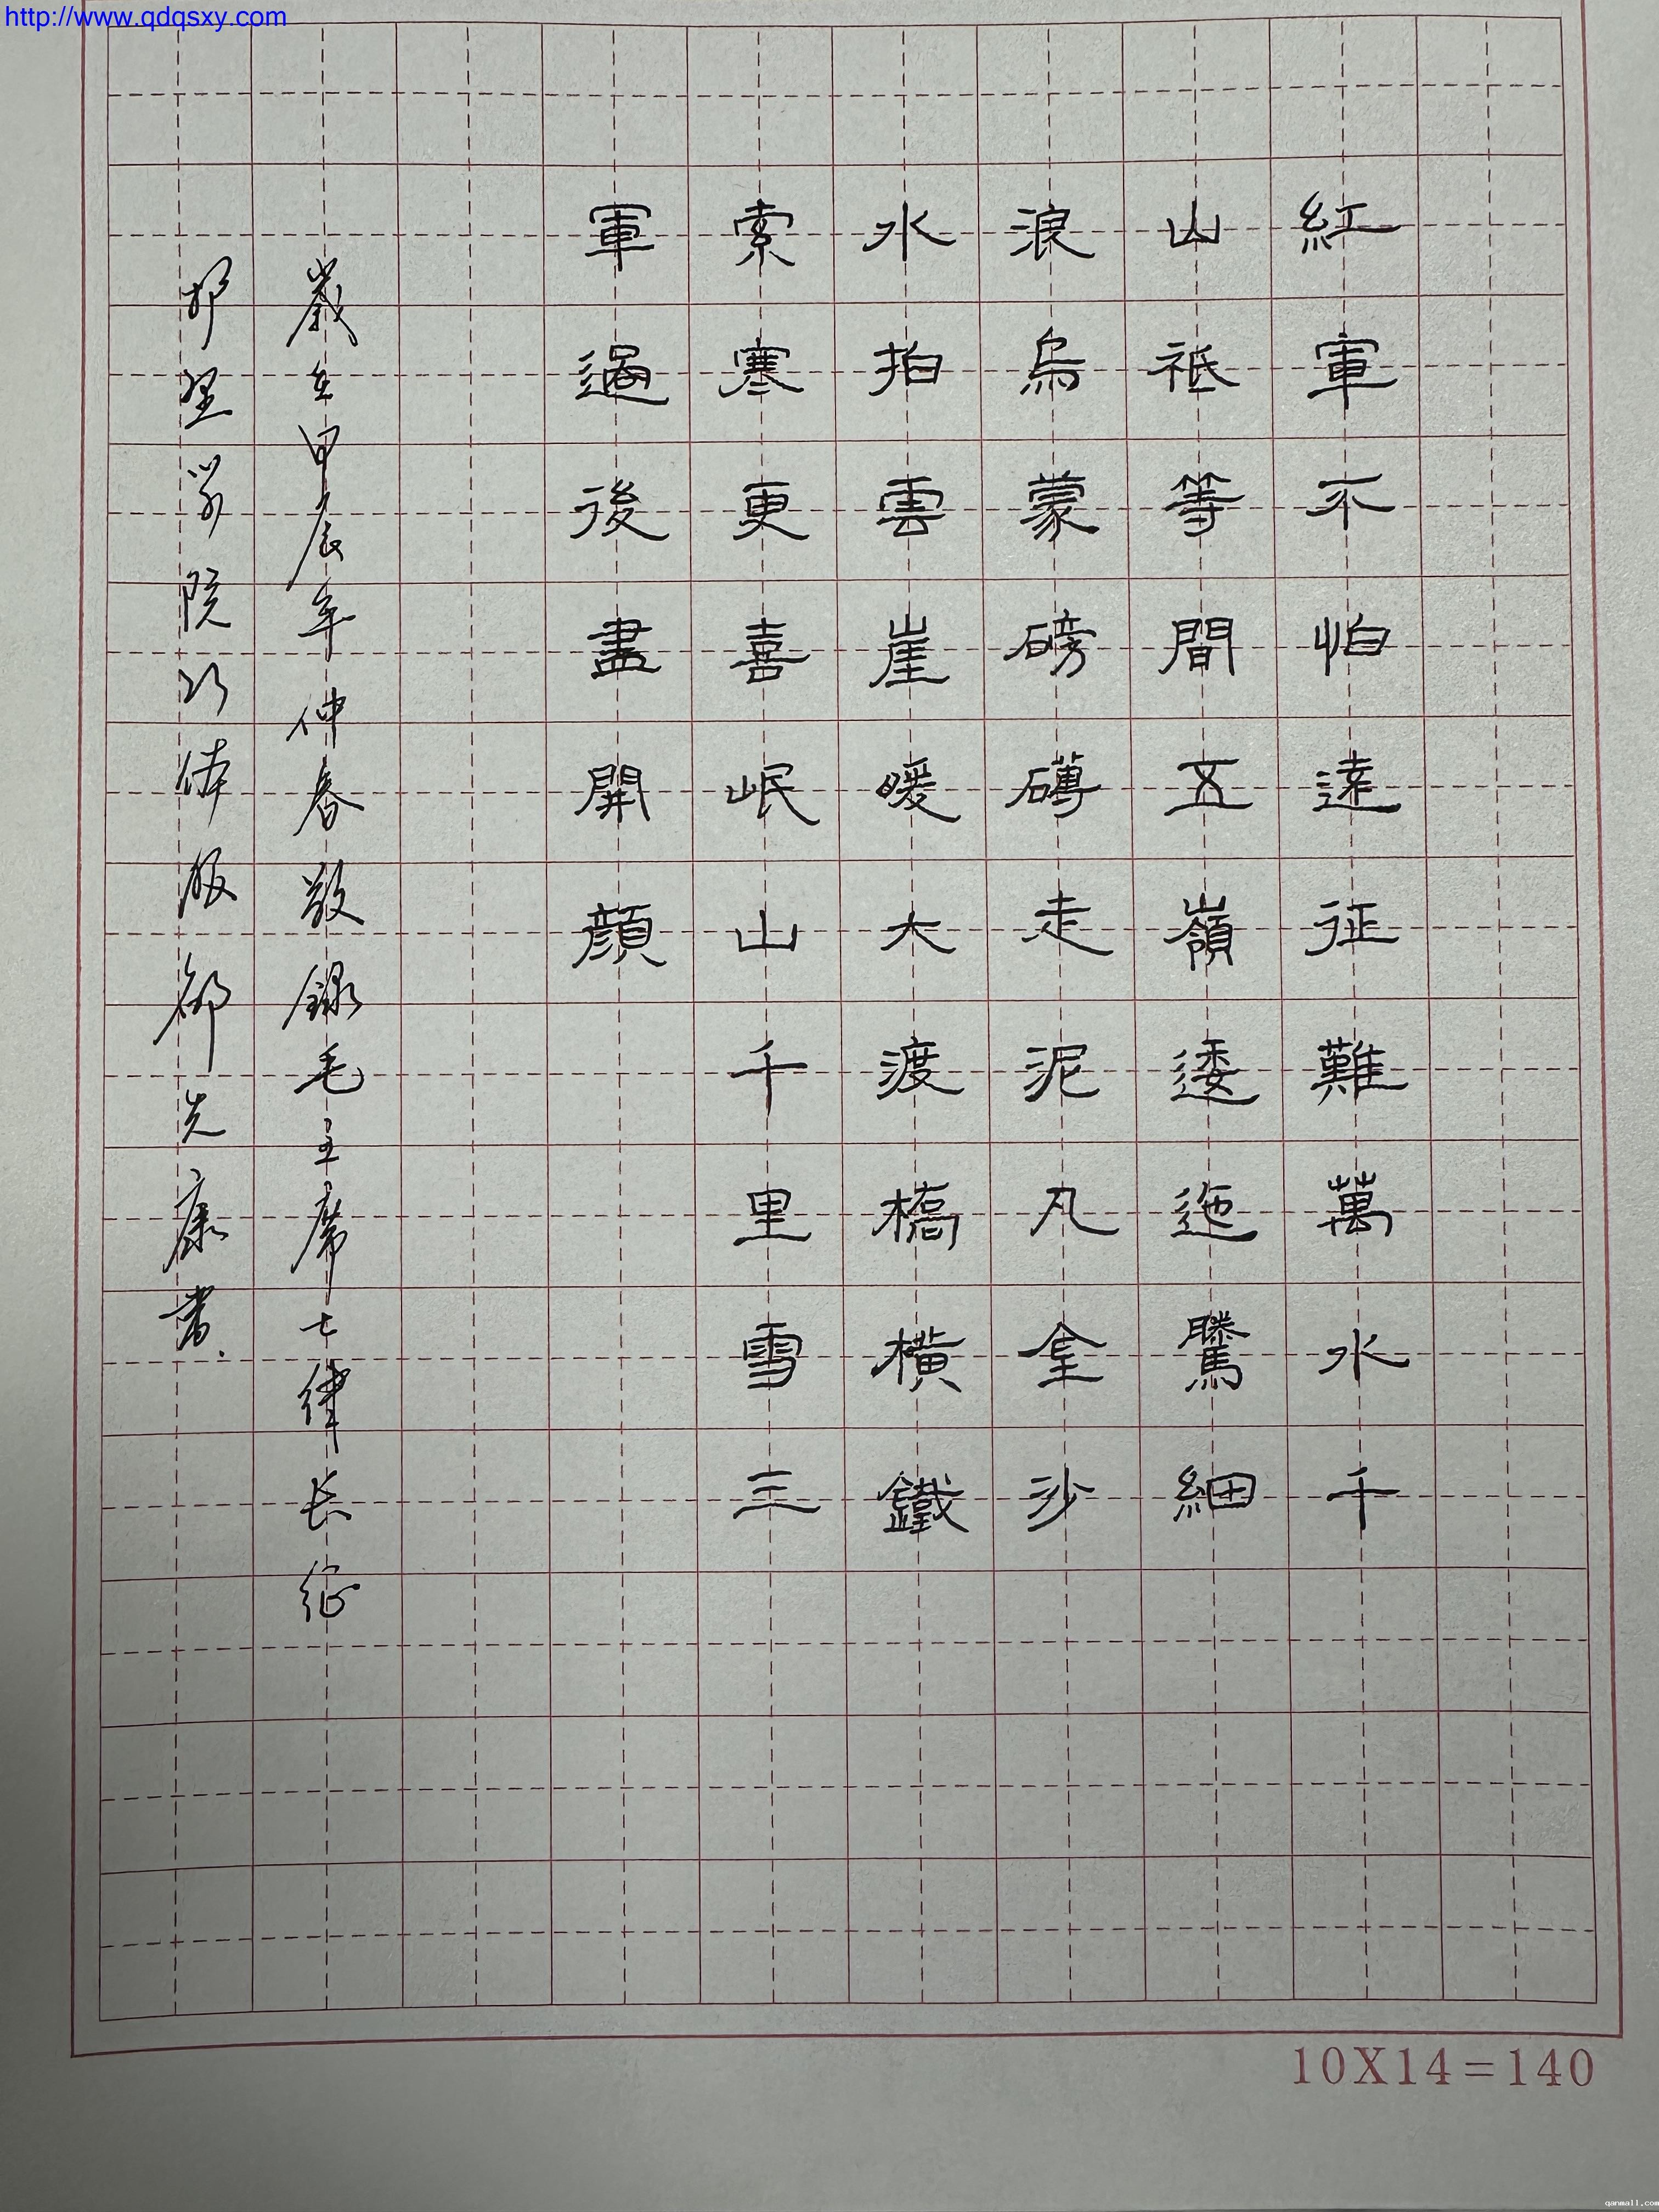 http://www.qdqsxy.com
紅軍不怕遠征難萬水千
山祗等閒五嶺逶迤騰細
浪烏蒙磅礴走泥凡金沙
水拍雲崖暖大渡橋橫鐵
索寒更喜岷山千里雪三
軍過後盡開顔
歲在甲辰年仲春敬錄毛主席七律长征
學院 先康書
10X14=140
qanmall.com